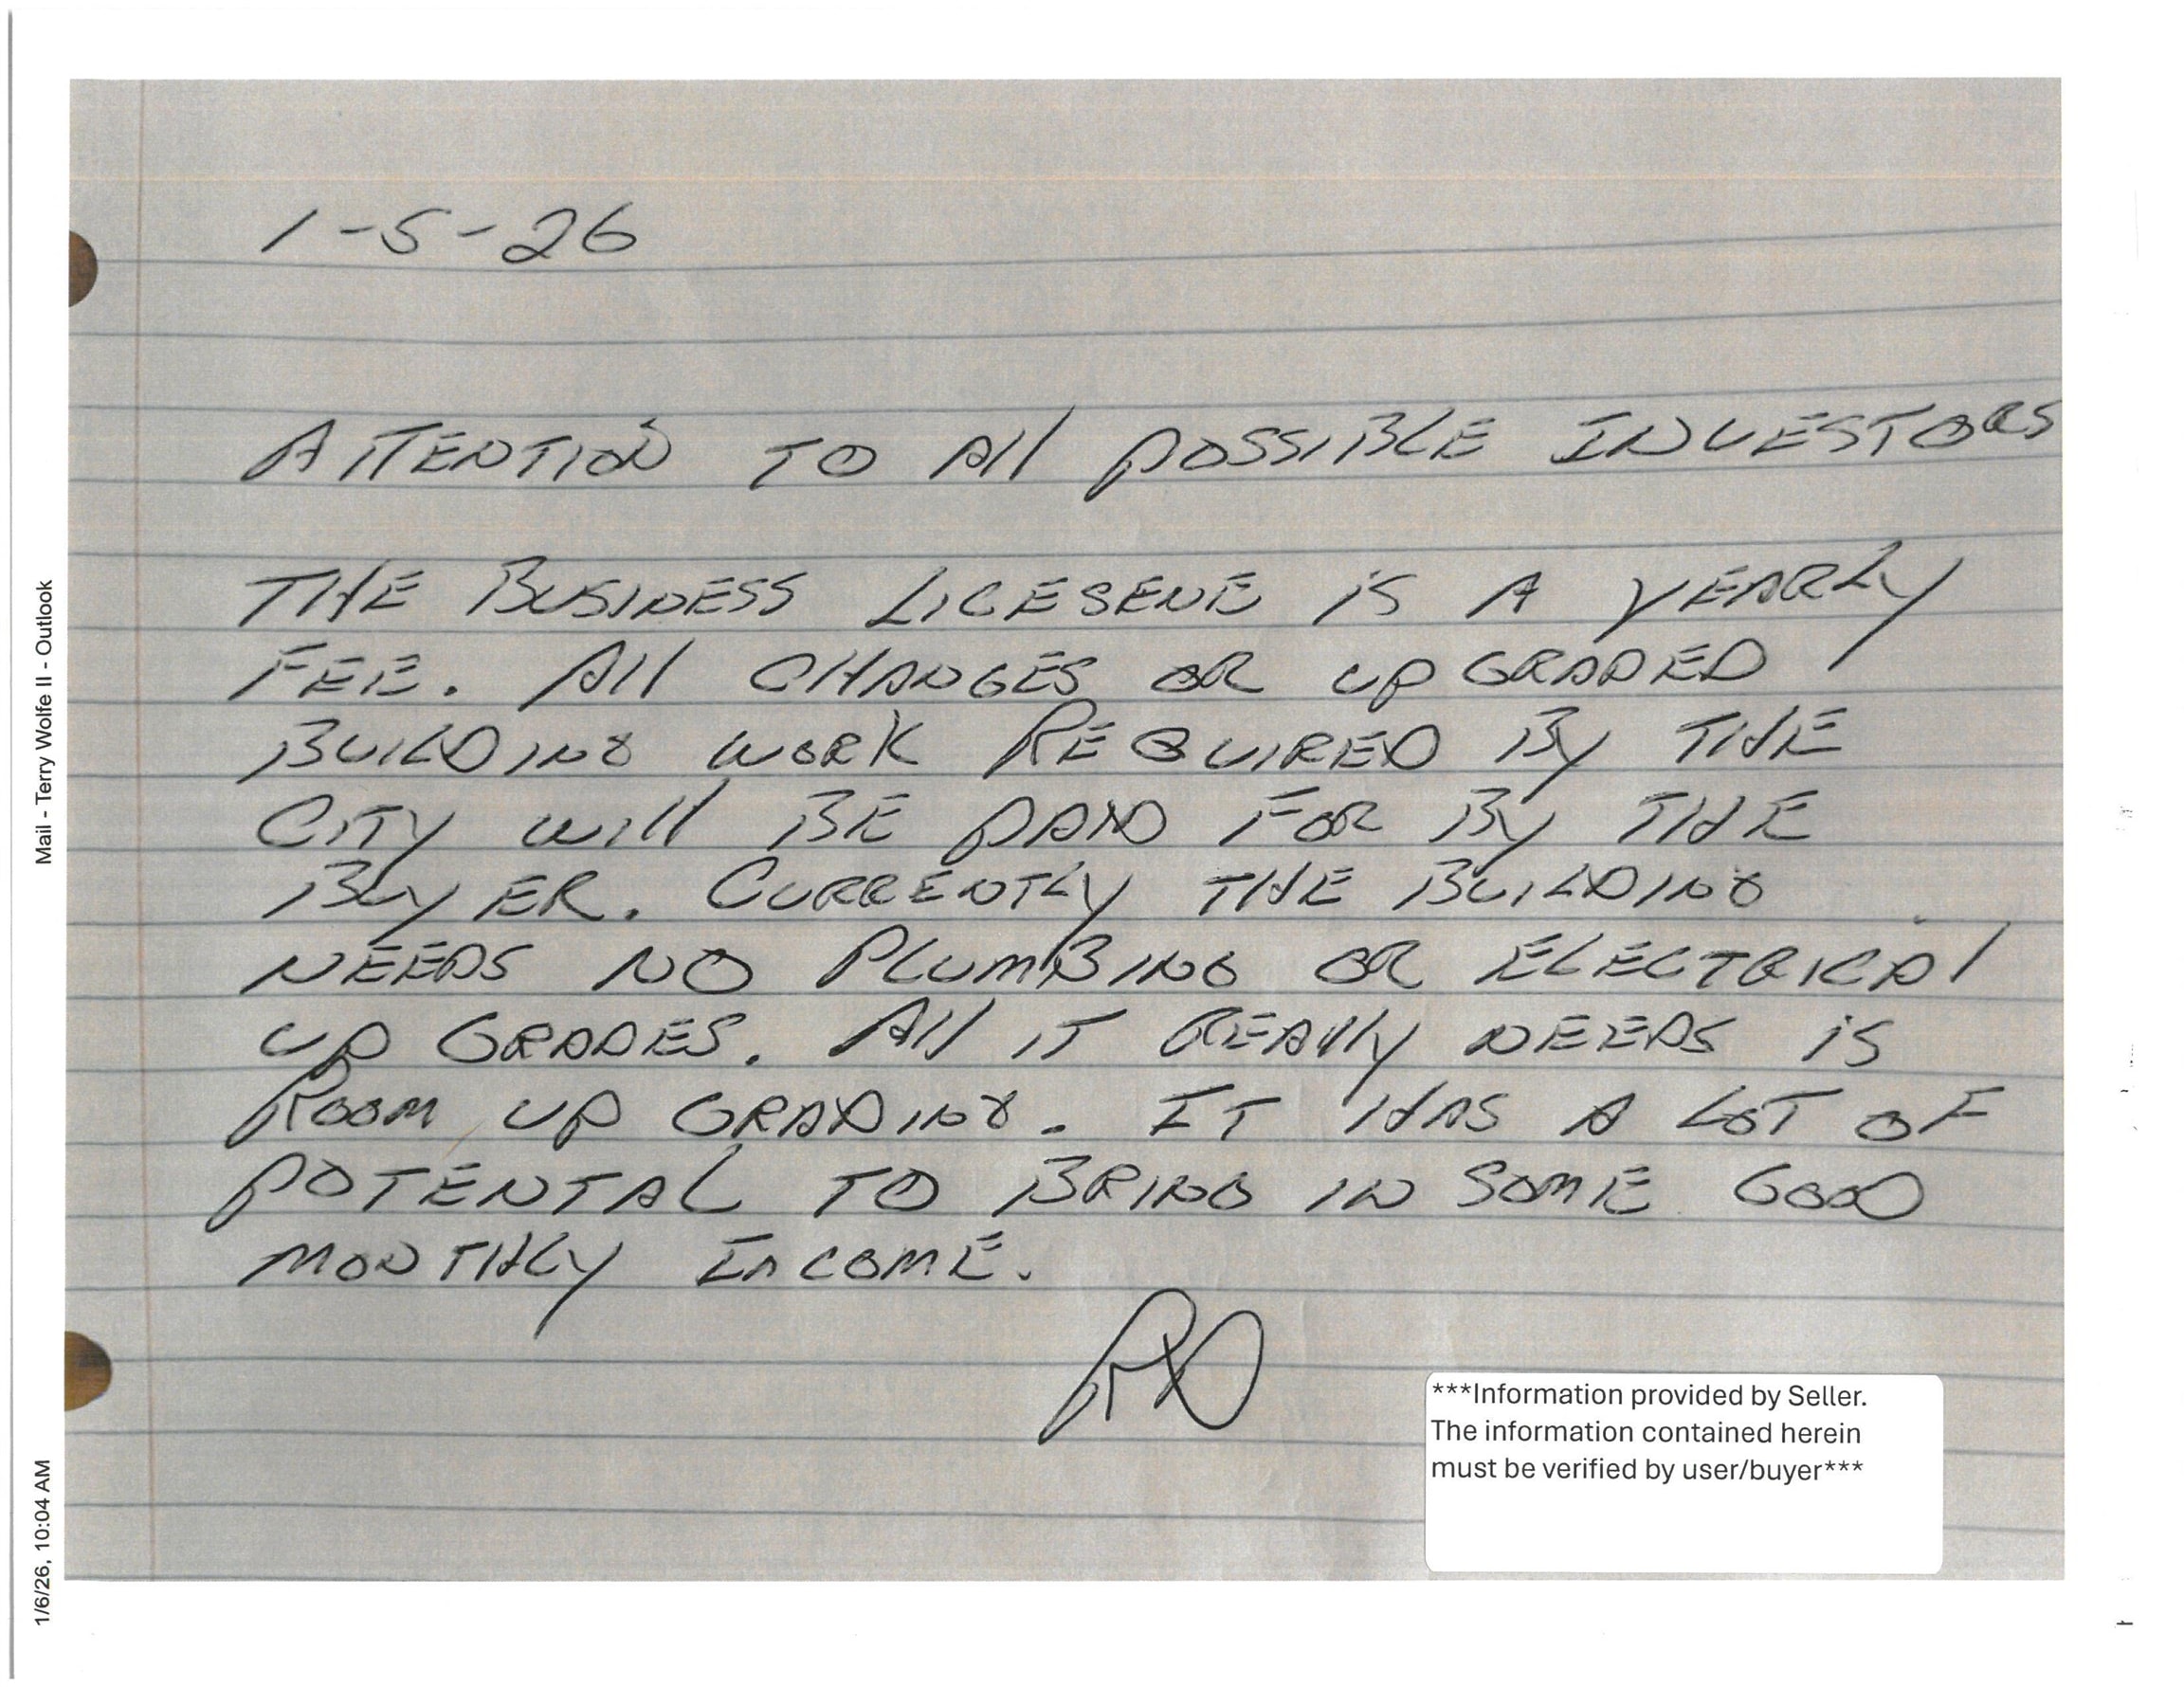 Mail - Terry Wolfe II - Outlook
1/6/26, 10:04 AM
1-5-26
ATTENTION TO All POSSIBLE INVESTORS
THE BUSINESS LICESENE iS A YEARLY
FEE. All CHANGES OR UP GRADED
BUILDING WORK REQUIRED By THE
CiTy will BE PAID FOR By THE
BUyER. CURRENTLY THE BUILDING
NEEDS NO PLUMBING OR ELECTRICAl
UP GRADES. All iT REAlly NEEDS iS
ROOM UP GRADING. IT HAS A LOT OF
POTENTAL TO BRING IN SOME GOOD
MONTHLY INCOME.
RD
***Information provided by Seller.
The information contained herein
must be verified by user/buyer***